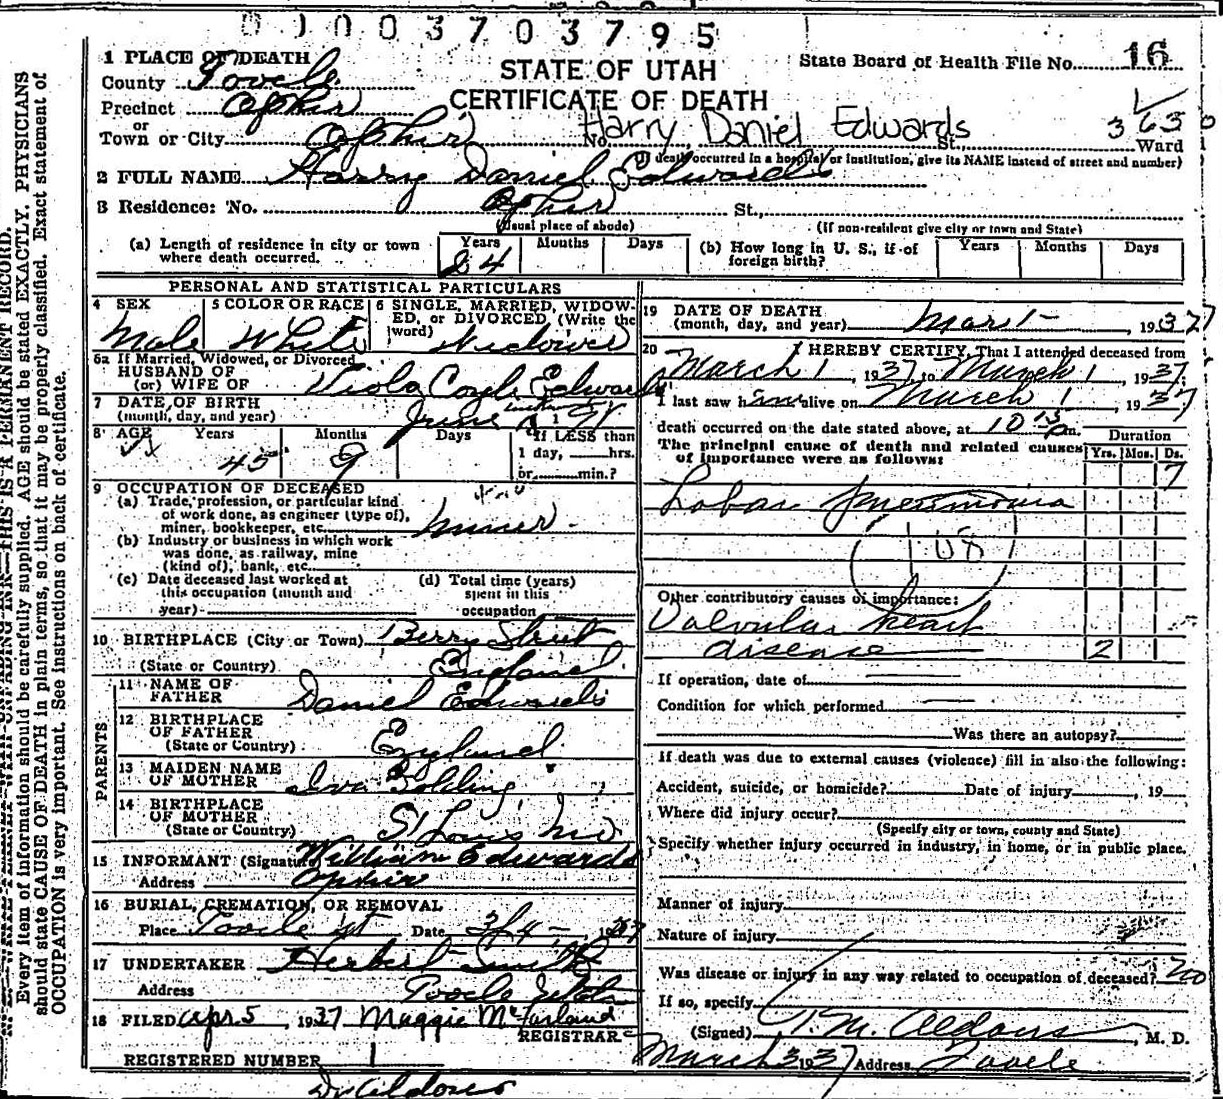 0 1 0 0 3 7 0 3 7 9 5
1 PLACE OF DEATH
STATE OF UTAH
CERTIFICATE OF DEATH
State Board of Health File No. 16
County Tooele
Precinct Ophir
or
Town or City Ophir No. Harry Daniel Edwards St., Ward
3 63
(If death occurred in a hospital or institution, give its NAME instead of street and number)
2 FULL NAME Harry Daniel Edwards
3 Residence: No. Ophir St.,
(Usual place of abode) (If non-resident give city or town and State)
(a) Length of residence in city or town where death occurred. Years 24 Months Days
(b) How long in U. S., if of foreign birth? Years Months Days
PERSONAL AND STATISTICAL PARTICULARS
4 SEX Male
5 COLOR OR RACE White
6 SINGLE, MARRIED, WIDOWED, or DIVORCED, (Write the word) Widower
6a If Married, Widowed, or Divorced
HUSBAND OF
(or) WIFE OF Viola Coyle Edwards
7 DATE OF BIRTH
(month, day, and year) June
8 AGE Years 45 Months 9 Days If LESS than
1 day, hrs.
or min.?
9 OCCUPATION OF DECEASED
(a) Trade, profession, or particular kind
of work done, as engineer (type of),
miner, bookkeeper, etc. miner
(b) Industry or business in which work
was done, as railway, mine
(kind of), bank, etc.
(c) Date deceased last worked at
this occupation (month and
year)
(d) Total time (years)
spent in this
occupation
10 BIRTHPLACE (City or Town) Berry Street
(State or Country) England
PARENTS
11 NAME OF
FATHER Daniel Edwards
12 BIRTHPLACE
OF FATHER
(State or Country) England
13 MAIDEN NAME
OF MOTHER Iva
14 BIRTHPLACE
OF MOTHER
(State or Country) St Louis Mo
15 INFORMANT (Signature) William Edwards
Address Ophir
16 BURIAL, CREMATION, OR REMOVAL
Place Tooele Ut Date 3/4 1937
17 UNDERTAKER Herbert Smith
Address Tooele Utah
18 FILED Apr 5 1937 Maggie McFarland
REGISTRAR
REGISTERED NUMBER 1
19 DATE OF DEATH
(month, day, and year) Mar 1 , 1937
20 I HEREBY CERTIFY, That I attended deceased from
March 1 , 1937 to March 1 , 1937
I last saw him alive on March 1 , 1937
death occurred on the date stated above, at 10 15 p m.
The principal cause of death and related causes
of importance were as follows:
Duration
Yrs. Mos. Ds.
7
Lobar pneumonia
108
Other contributory causes of importance:
Valvular heart
disease 2
If operation, date of
Condition for which performed
Was there an autopsy?
If death was due to external causes (violence) fill in also the following:
Accident, suicide, or homicide? Date of injury , 19
Where did injury occur?
(Specify city or town, county and State)
Specify whether injury occurred in industry, in home, or in public place.
Manner of injury
Nature of injury
Was disease or injury in any way related to occupation of deceased? no
If so, specify
(Signed) T. M. Aldous , M. D.
March 3 1937 Address Tooele
Dr Aldous
Every item of information should be carefully supplied. AGE should be stated EXACTLY. PHYSICIANS
should state CAUSE OF DEATH in plain terms, so that it may be properly classified. Exact statement of
OCCUPATION is very important. See instructions on back of certificate.
THIS IS A PERMANENT RECORD.